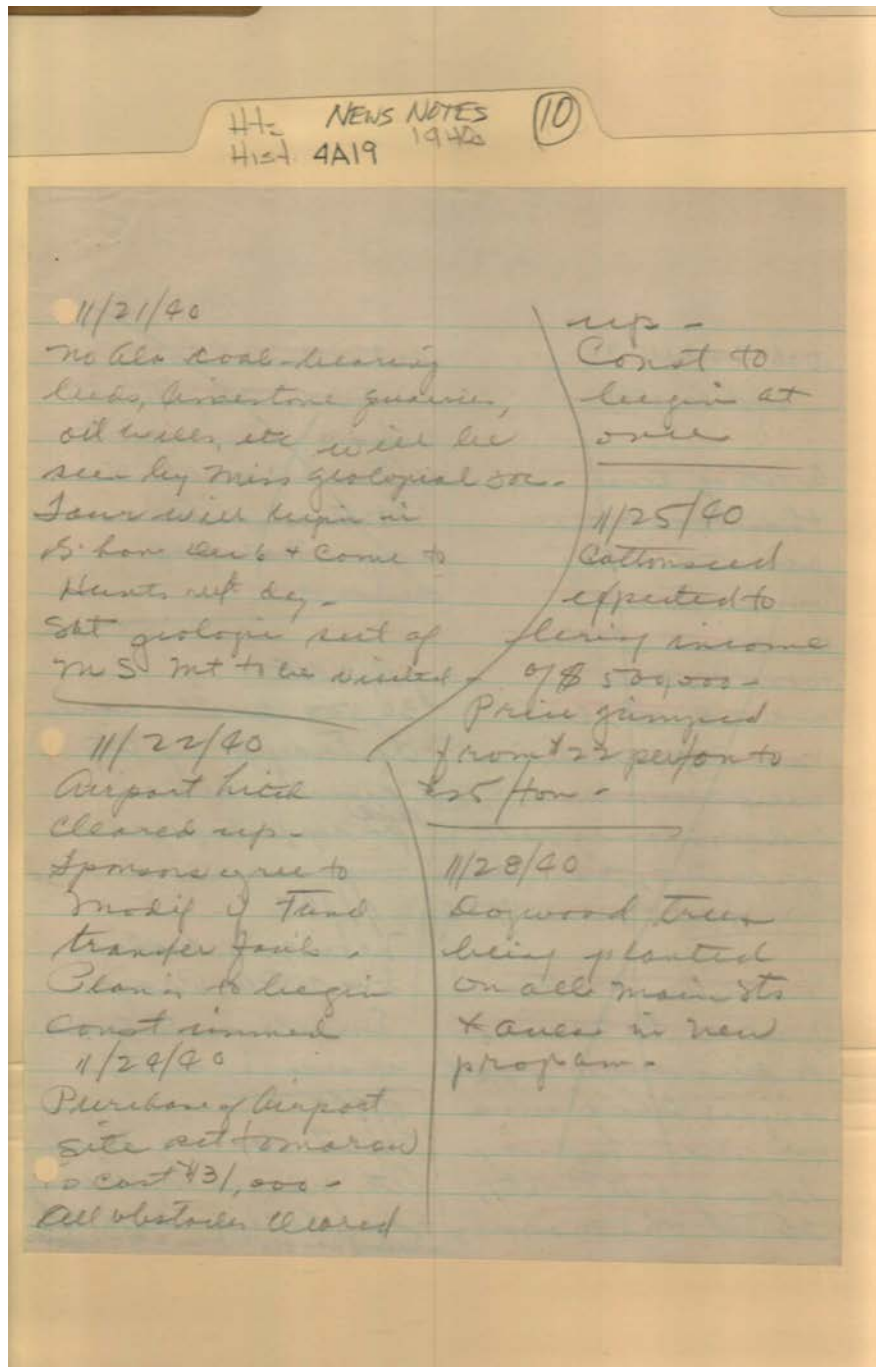 Htz NEWS NOTES 10
Hist 4A19 1940s
11/21/40
No Ala coal-bearing
beds, limestone quarries,
oil wells, etc will be
seen by Miss geological soc.
Tour will begin in
B'ham Dec 6 & come to
Hunts next day.
Sat geologic sect of
M S Mt to be visited -
11/22/40
Airport hitch
cleared up -
Sponsors agree to
modif if Fund
transfer fails.
Plan is to begin
const immed
11/24/40
Purchase of Airport
site set tomorow
to cost $31,000 -
All obstacles cleared
up -
Const to
begin at
once
11/25/40
Cottonseed
expected to
bring income
of $500,000 -
Price jumped
from $22 per ton to
$25/ton -
11/28/40
Dogwood trees
being planted
on all main Sts
& aves in new
program -